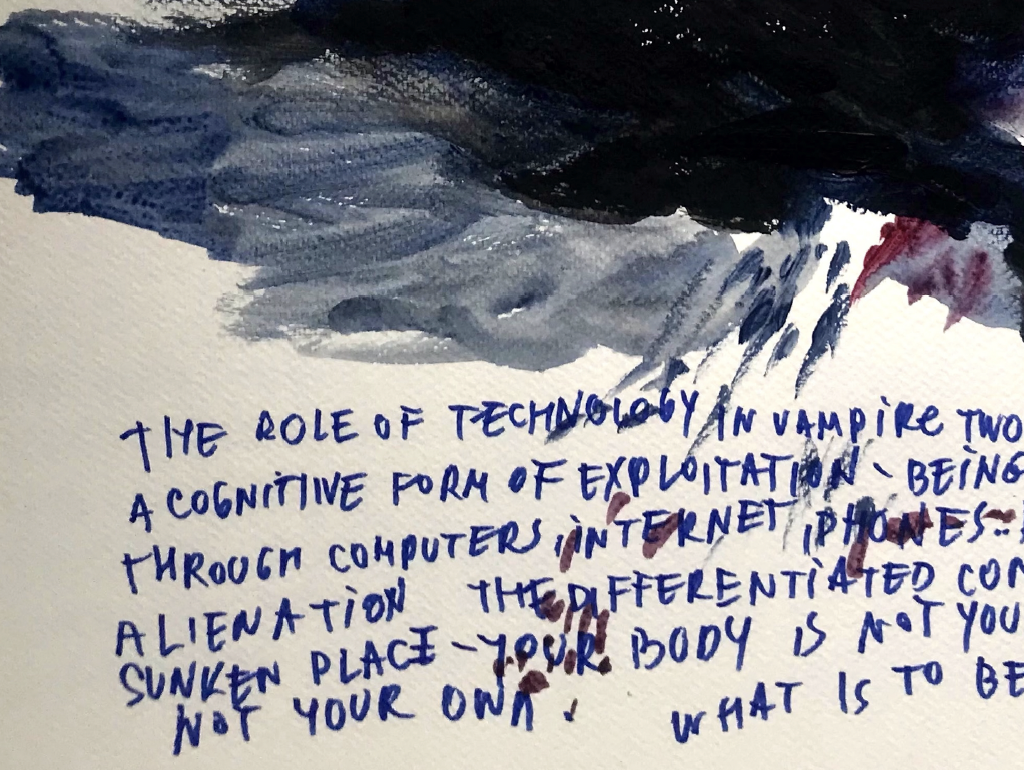 THE ROLE OF TECHNOLOGY IN VAMPIRE TWO
A COGNITIVE FORM OF EXPLOITATION - BEING
THROUGH COMPUTERS, INTERNET, PHONES..
ALIENATION THE DIFFERENTIATED CON
SUNKEN PLACE - YOUR BODY IS NOT YOU
NOT YOUR OWN. WHAT IS TO BE